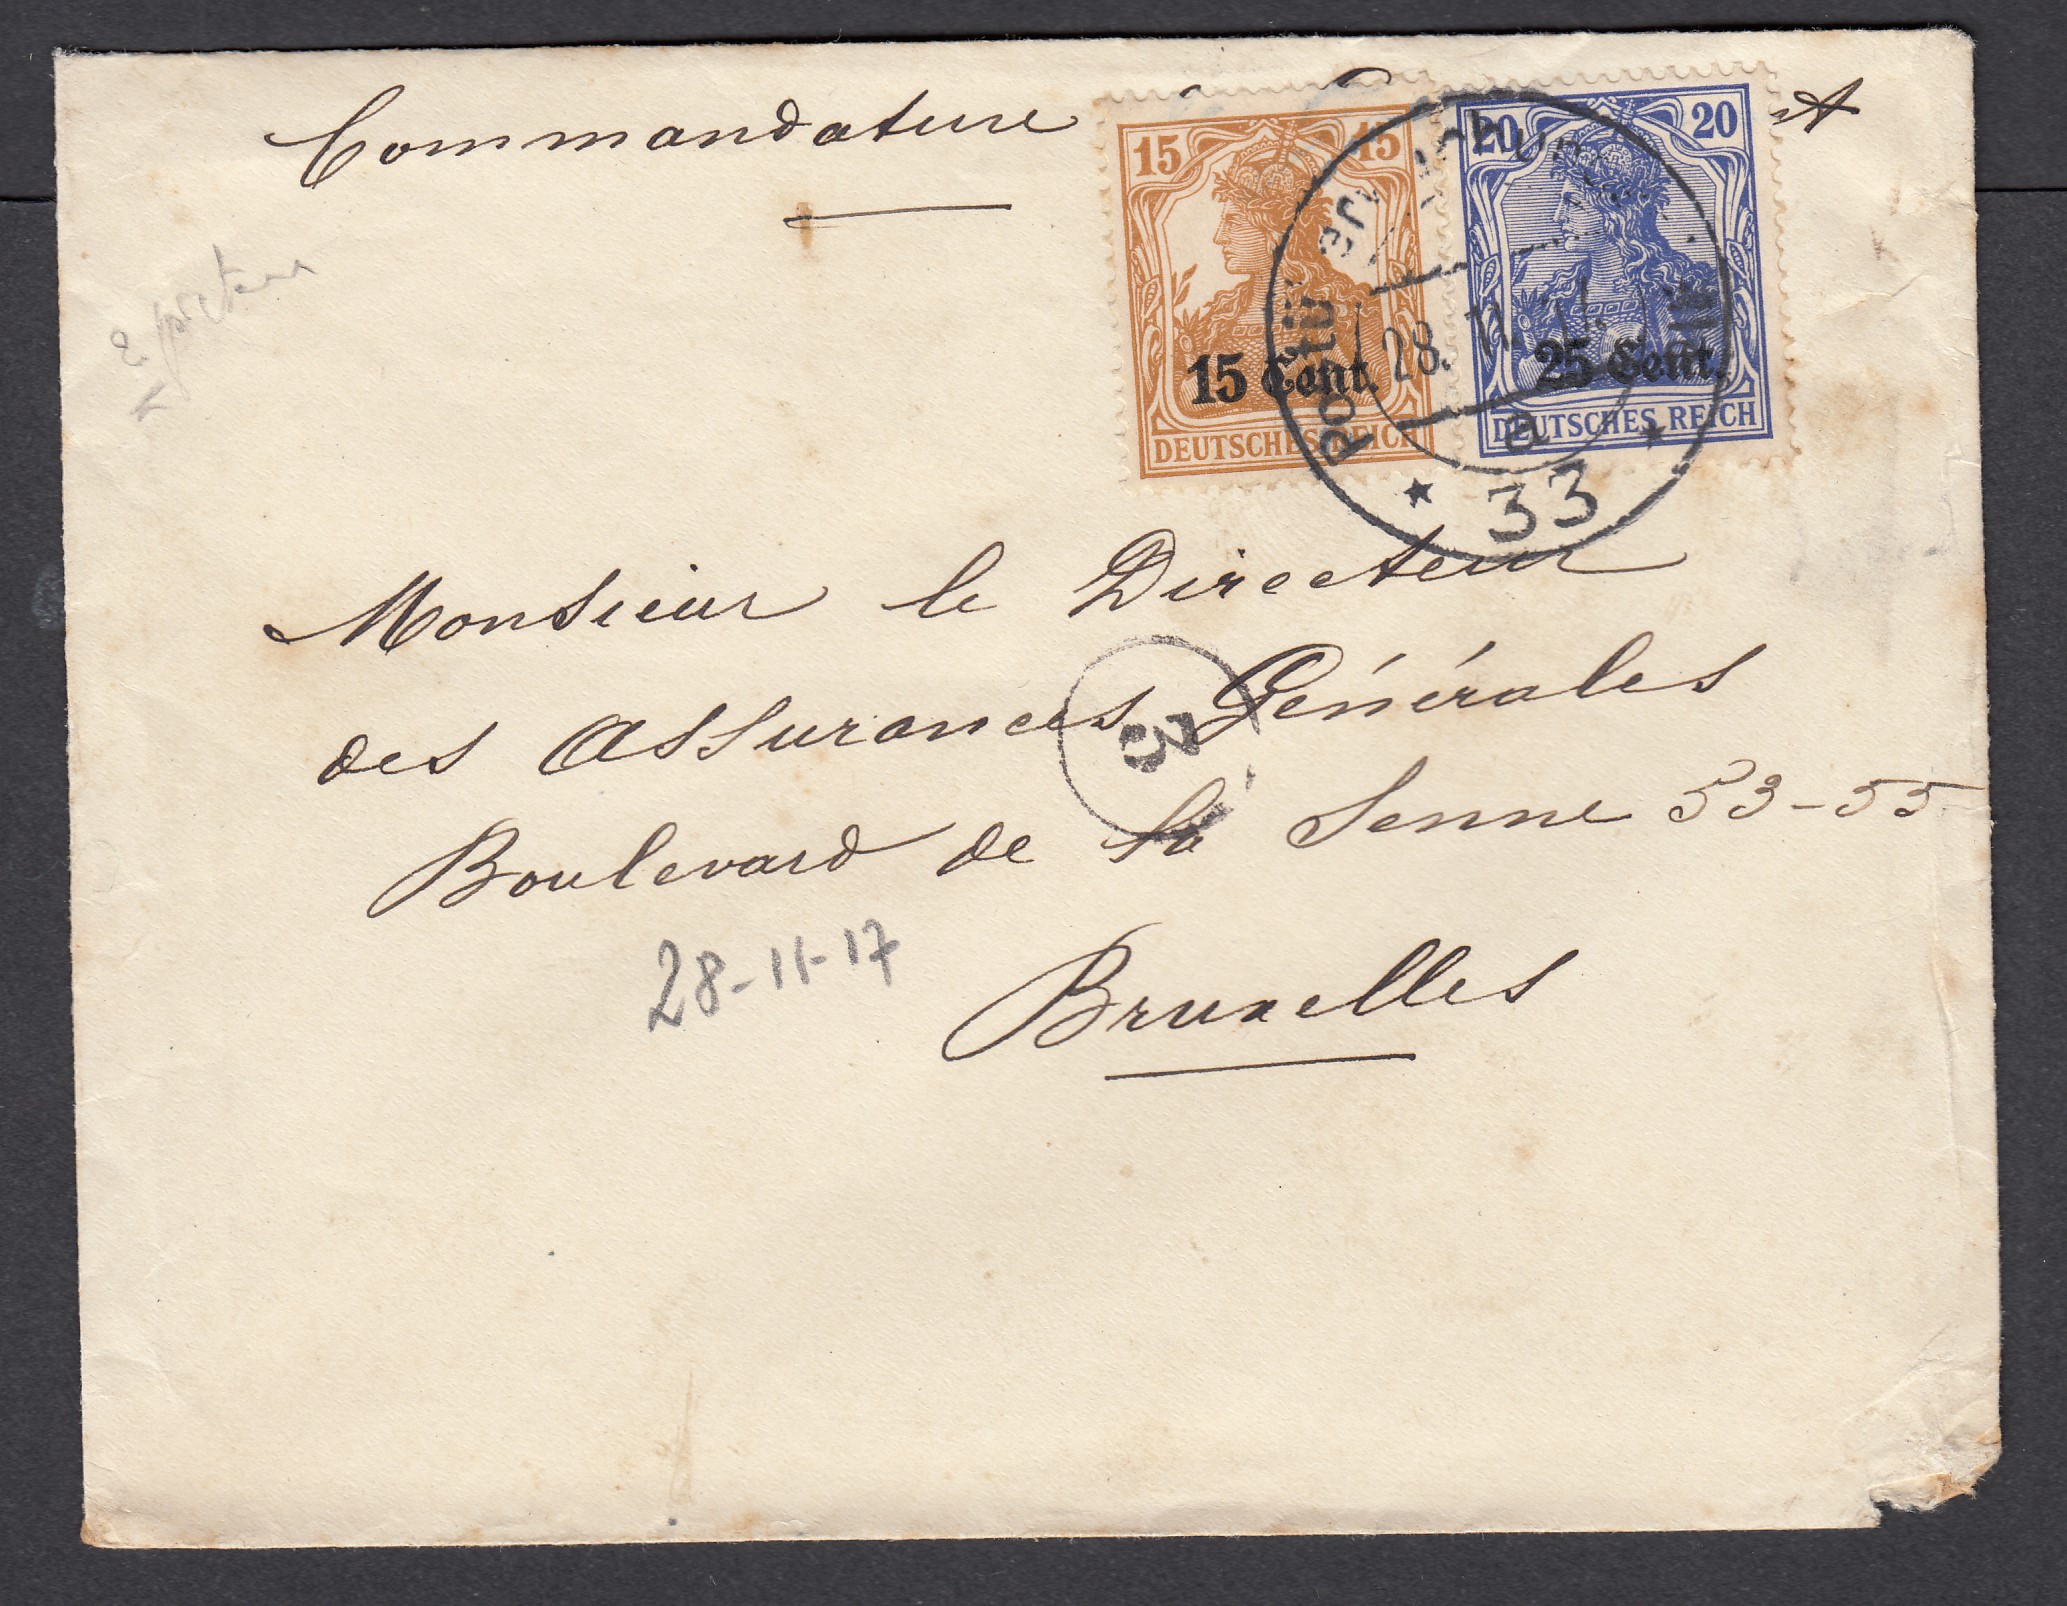 Commandature
15 15
15 Cent.
DEUTSCHES REICH
20 20
25 Cent.
DEUTSCHES REICH
28. 11.
a
★ 33 ★
Monsieur le Directeur
des Assurances Générales
Boulevard de la Senne 53-55
28-11-17
Bruxelles